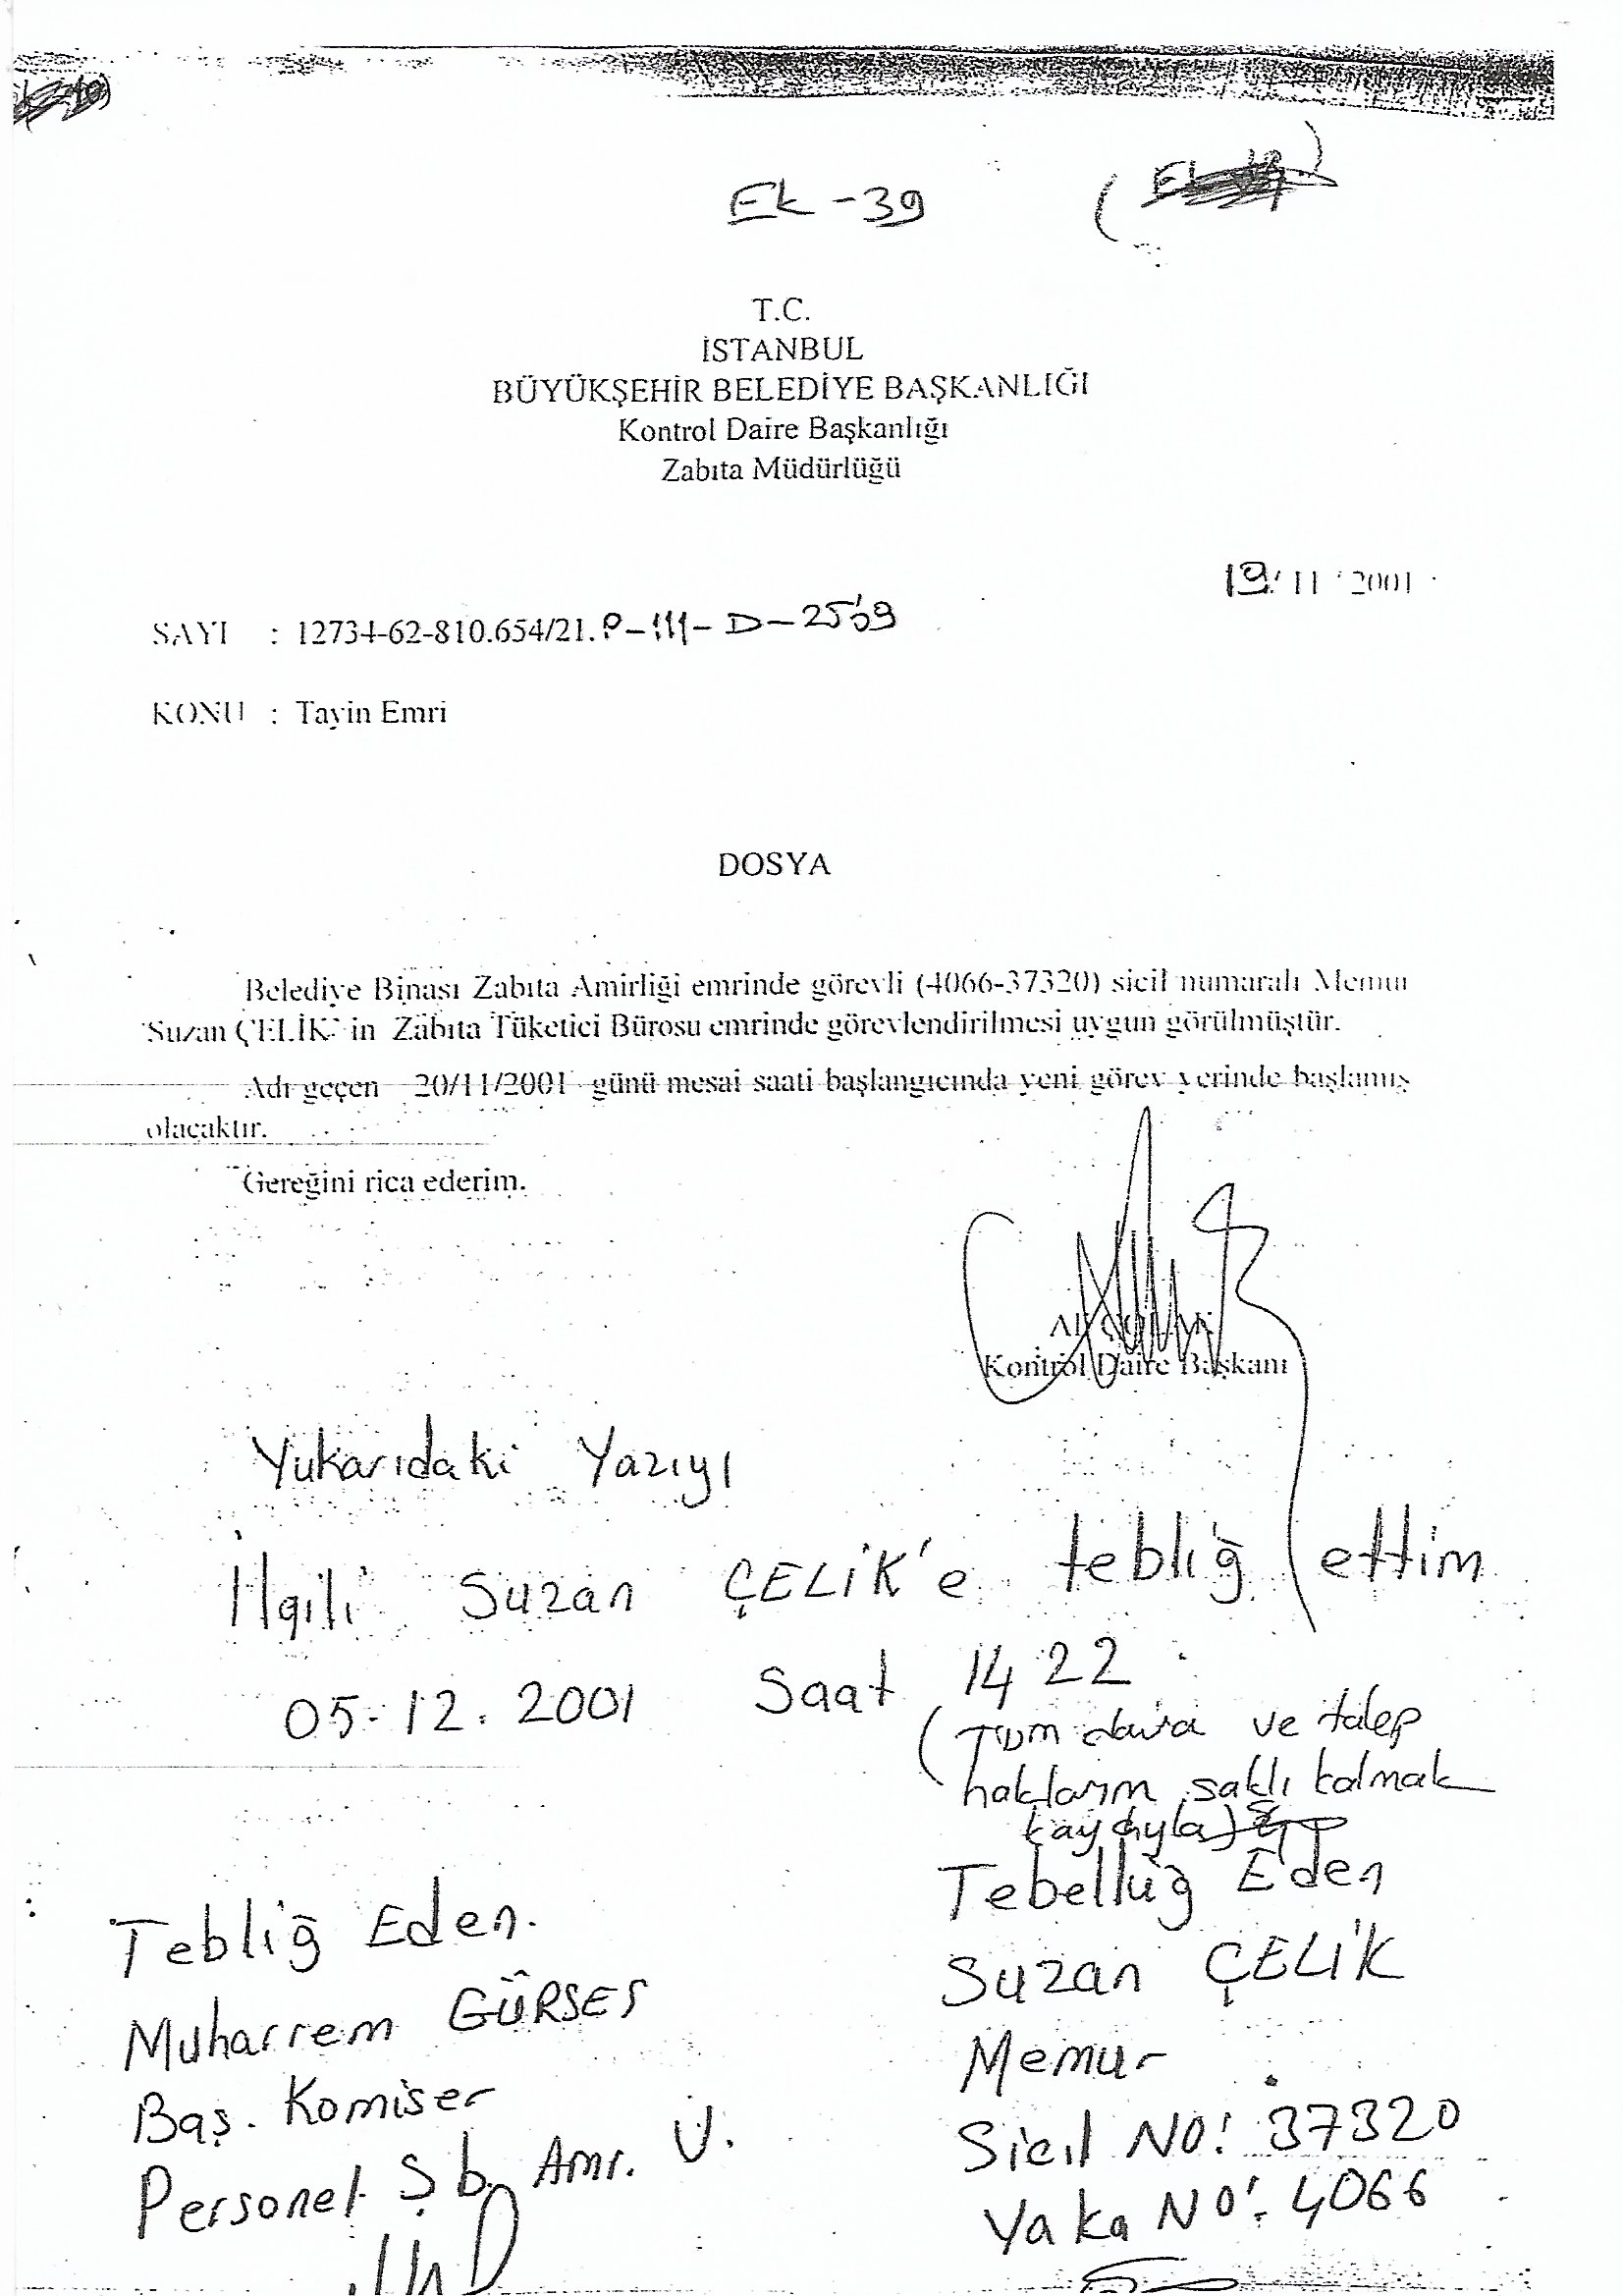 Ek - 39
T.C.
İSTANBUL
BÜYÜKŞEHİR BELEDİYE BAŞKANLIĞI
Kontrol Daire Başkanlığı
Zabıta Müdürlüğü
19/11/2001
SAYI : 12734-62-810.654/21.P-111-D-2509
KONU : Tayin Emri
DOSYA
Belediye Binası Zabıta Amirliği emrinde görevli (4066-37320) sicil numaralı Memur
Suzan ÇELİK' in Zabıta Tüketici Bürosu emrinde görevlendirilmesi uygun görülmüştür.
Adı geçen 20/11/2001 günü mesai saati başlangıcında yeni görev yerinde başlamış
olacaktır.
Gereğini rica ederim.
Kontrol Daire Başkanı
Yukarıdaki Yazıyı
İlgili Suzan ÇELİK'e tebliğ ettim
05.12.2001 Saat 14 22
(Tüm dava ve talep
haklarım saklı kalmak
kaydıyla)
Tebliğ Eden.
Muharrem GÜRSES
Baş. Komiser
Personel Şb. Amr. V.
Tebellüğ Eden
Suzan ÇELİK
Memur
Sicil NO: 37320
Yaka NO: 4066